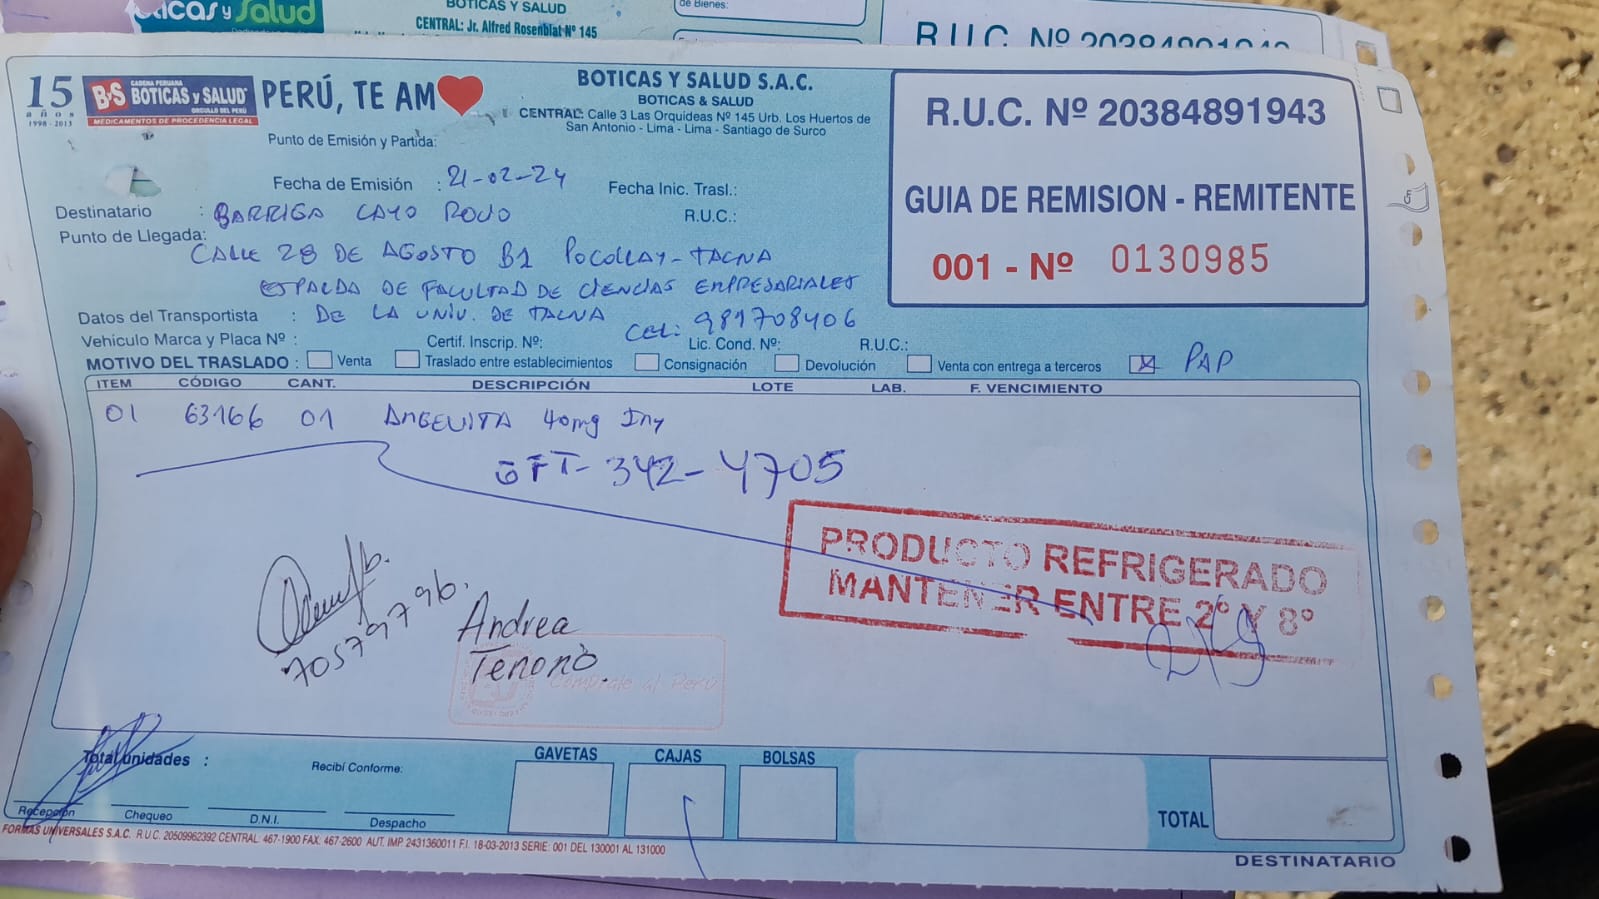 BOTICAS Y SALUD
CENTRAL: Jr. Alfred Rosenblat Nº 145
de Bienes:
R.U.C. Nº 20384891943
15
años
1998 - 2013
CADENA PERUANA
BYS BOTICAS y SALUD
ORGULLO DEL PERÚ
MEDICAMENTOS DE PROCEDENCIA LEGAL
PERÚ, TE AM
BOTICAS Y SALUD S.A.C.
BOTICAS & SALUD
CENTRAL: Calle 3 Las Orquideas Nº 145 Urb. Los Huertos de
San Antonio - Lima - Lima - Santiago de Surco
R.U.C. Nº 20384891943
GUIA DE REMISION - REMITENTE
001 - Nº 0130985
Punto de Emisión y Partida:
Fecha de Emisión : 21-02-24 Fecha Inic. Trasl.:
Destinatario : BARRIGA CAYO ROJO R.U.C.:
Punto de Llegada: CALLE 28 DE AGOSTO B1 POCOLLAY-TACNA
ESPALDA DE FACULTAD DE CIENCIAS EMPRESARIALES
Datos del Transportista : DE LA UNIV. DE TACNA CEL: 981708406
Vehículo Marca y Placa Nº : Certif. Inscrip. Nº: Lic. Cond. Nº: R.U.C.:
MOTIVO DEL TRASLADO : Venta Traslado entre establecimientos Consignación Devolución Venta con entrega a terceros X PAP
ITEM CÓDIGO CANT. DESCRIPCIÓN LOTE LAB. F. VENCIMIENTO
01 63166 01 AMGEVITA 40mg Iny
GFT-342-4705
PRODUCTO REFRIGERADO
MANTENER ENTRE 2° Y 8°
70579796.
Andrea
Tenorio
Cómprale al Perú
Total unidades :
Recibí Conforme:
GAVETAS CAJAS BOLSAS
TOTAL
Recepción Chequeo D.N.I. Despacho
FORMAS UNIVERSALES S.A.C. R.U.C. 20509962392 CENTRAL: 467-1900 FAX: 467-2600 AUT. IMP. 2431360011 F.I. 18-03-2013 SERIE: 001 DEL 130001 AL 131000
DESTINATARIO